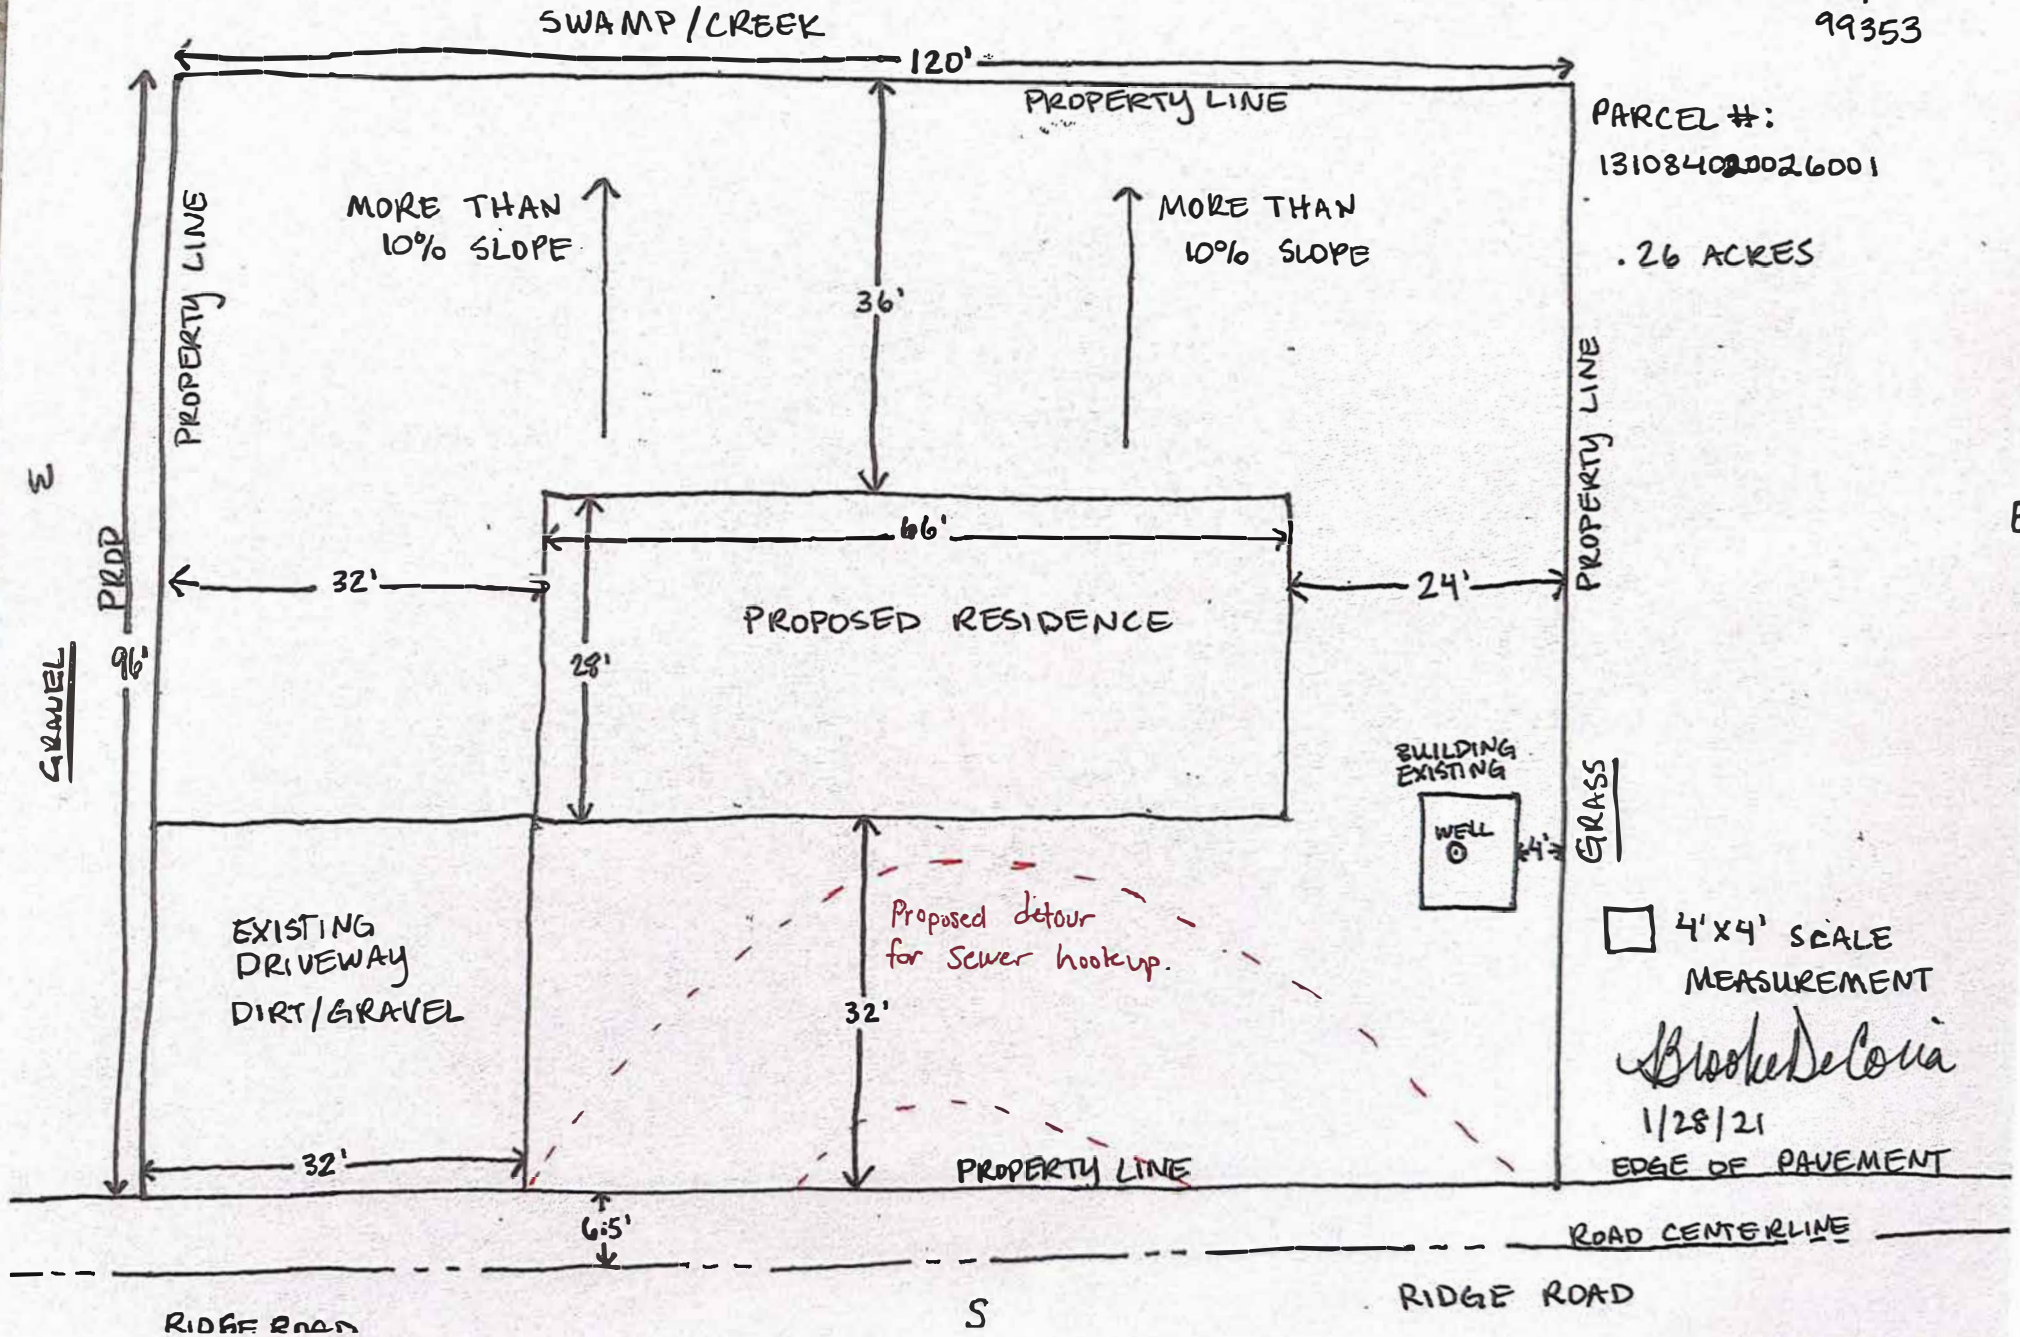 SWAMP/CREEK
99353
120'
PROPERTY LINE
PARCEL #:
131084020026001
.26 ACRES
PROPERTY LINE
MORE THAN
10% SLOPE
MORE THAN
10% SLOPE
36'
PROPERTY LINE
W
E
PROP
96'
GRAVEL
66'
32'
24'
28'
PROPOSED RESIDENCE
BUILDING
EXISTING
WELL
4'
GRASS
EXISTING
DRIVEWAY
DIRT/GRAVEL
Proposed detour
for sewer hookup.
32'
4'X4' SCALE
MEASUREMENT
Brooke DeCoria
1/28/21
32'
PROPERTY LINE
EDGE OF PAVEMENT
6.5'
ROAD CENTERLINE
RIDGE ROAD
S
RIDGE ROAD